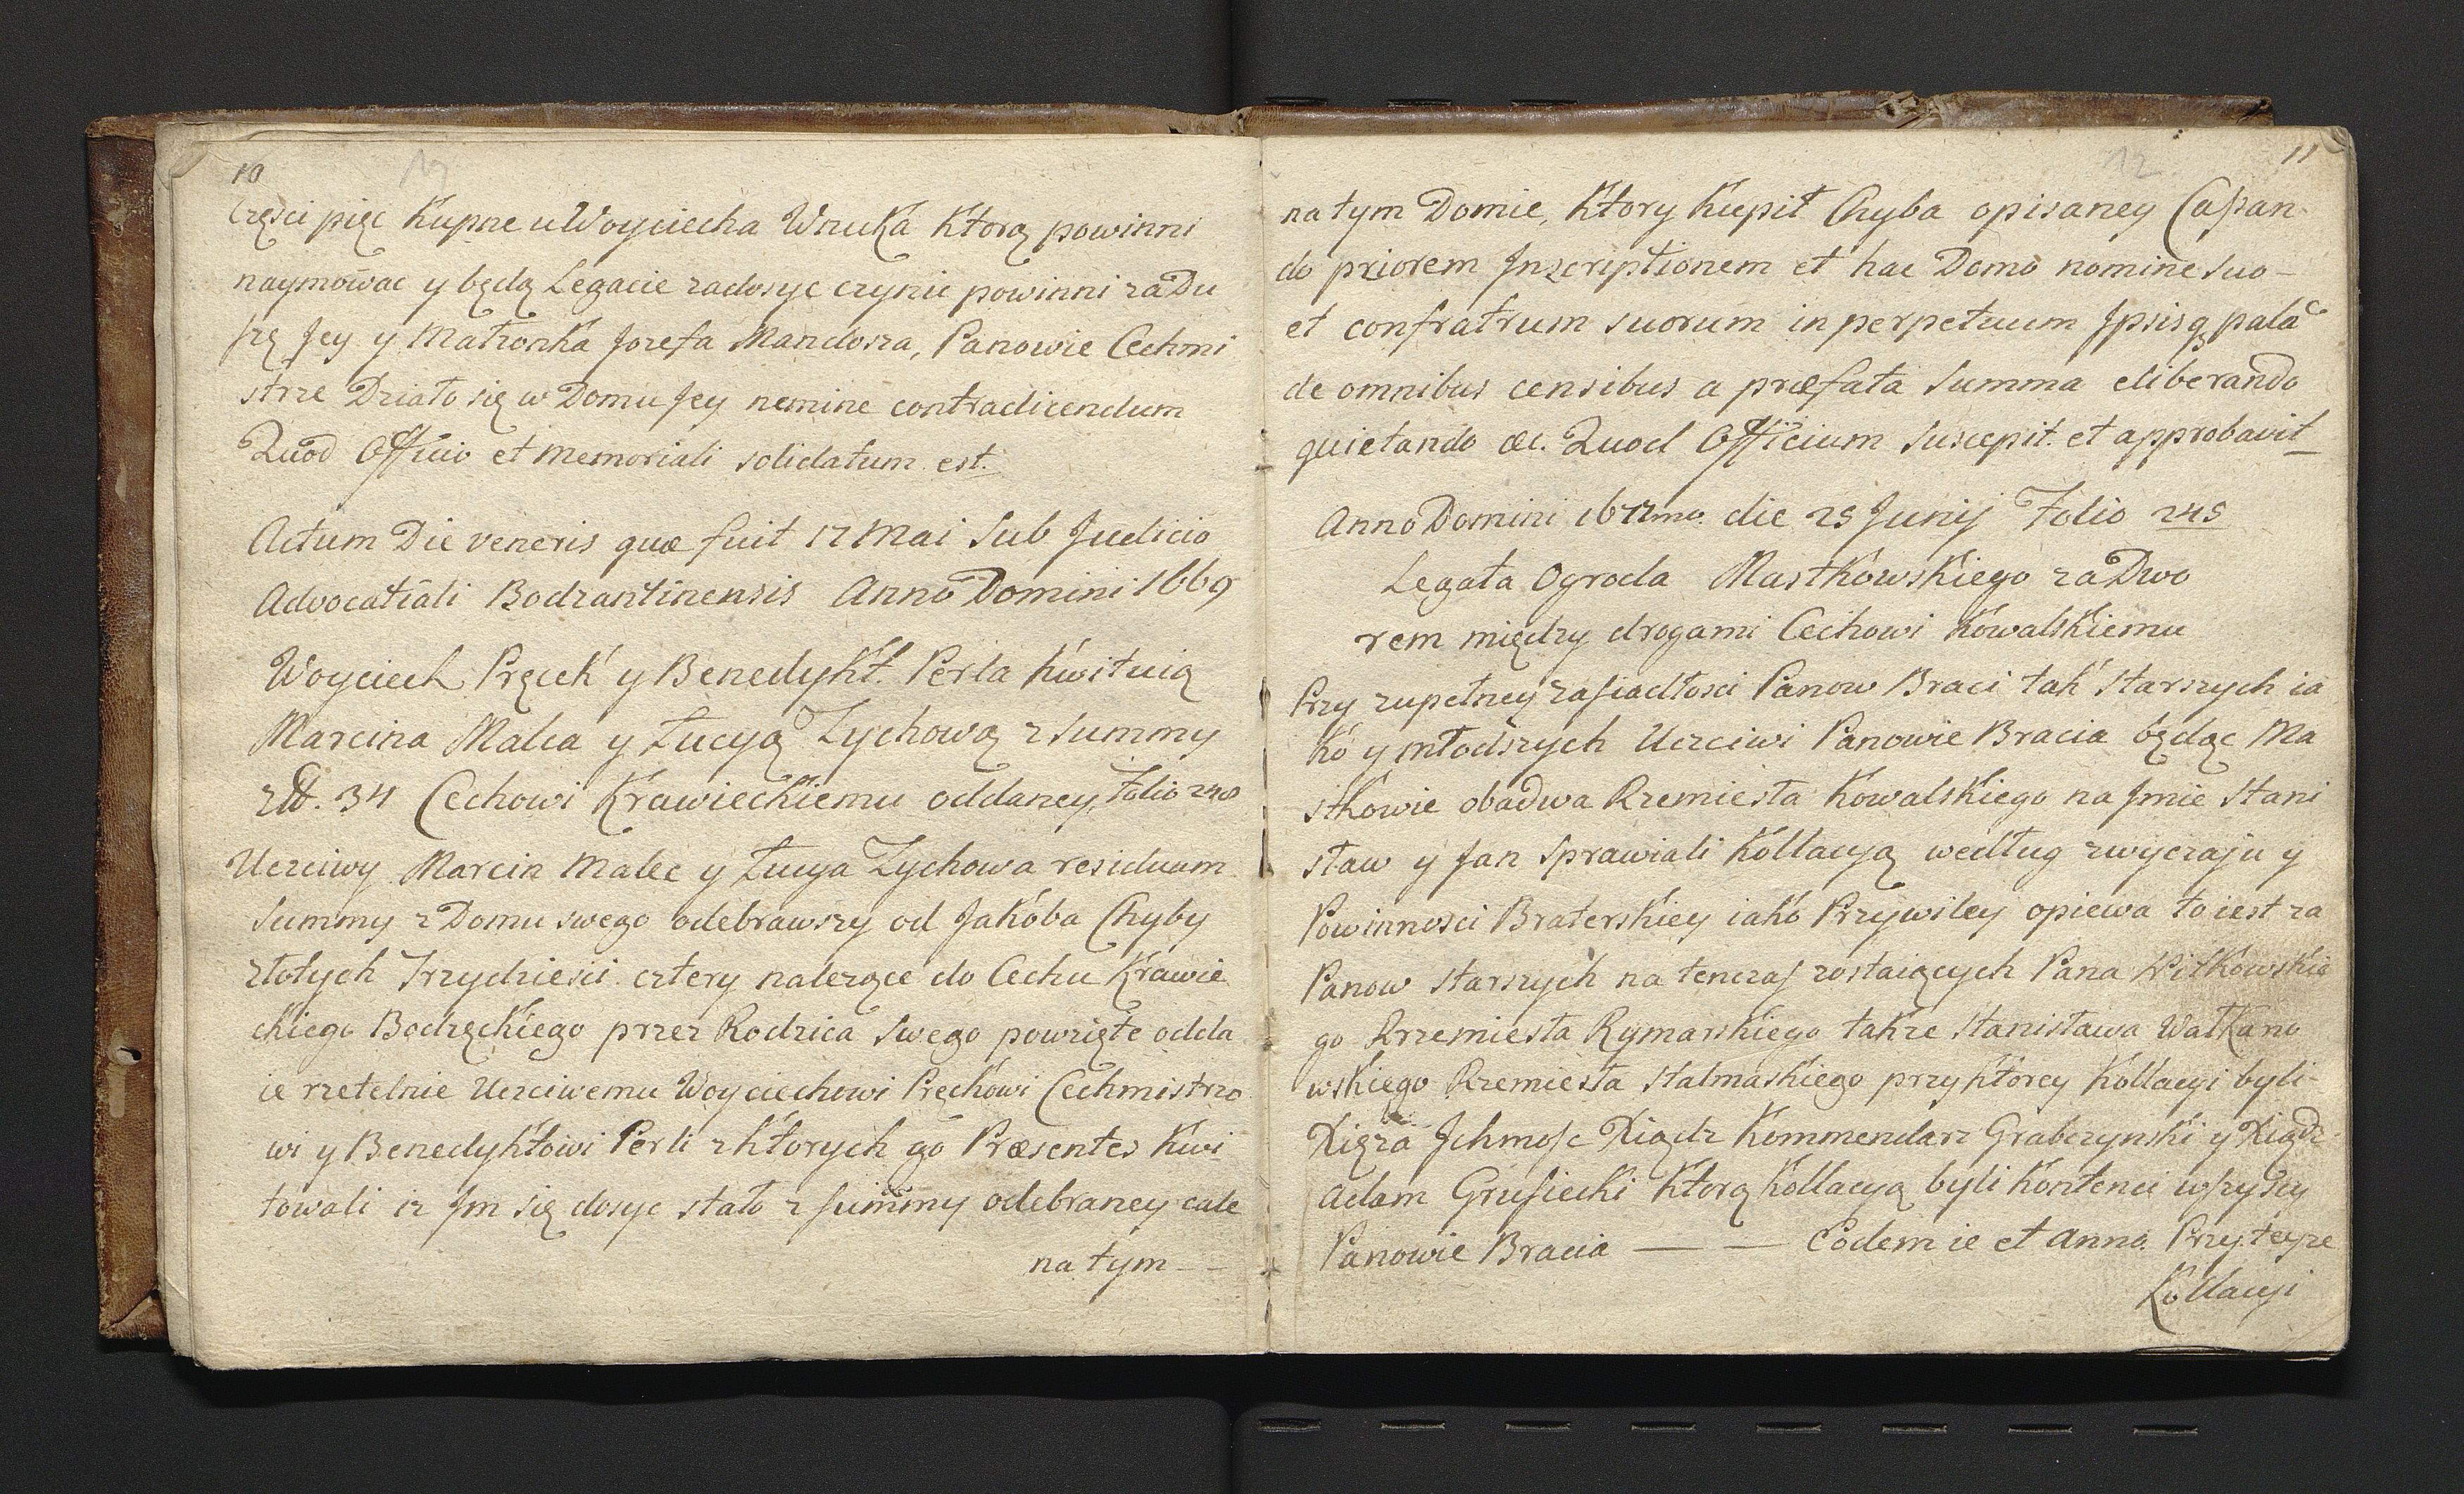 10
Części pięc Kupne u Woyciecha Wnuka Ktorą powinni
naymowac y będą Legacie zadosyc czynic powinni za Du
szę Jey y Małzonka Jozefa Mandosza, Panowie Cechmi
strze Działo się w Domu Jey nemine contradicendum
Quod Officio et memoriali solidatum est.
Actum Die veneris quæ fuit 17 Mai Sub Judicio
Advocatiali Bodzantinensis Anno Domini 1669
Woyciech Pręcek y Benedykt Perla kwituią
Marcina Malca y Łucyą Zychową z Summy
złł. 34 Cechowi Krawieckiemu oddaney, Folio 248
Uczciwy Marcin Malec y Łucya Zychowa residuum
Summy z Domu swego odebrawszy od Jakóba Chyby
złotych Trzydziesci cztery nalezące do Cechu Krawie
ckiego Bodzęckiego przez Rodzica Swego powzięte odda
ie rzetelnie Uczciwemu Woyciechowi Pręckowi Cechmistrzo
wi y Benedyktowi Perli z ktorych go Præsentes kwi
towali iz Jm się dosyc stało z summy odebraney całe
na tym - -
11
12
na tym Domie, Ktory kupił Chyba opisaney Cassan
do priorem Jnscriptionem et hac Domo nomine Suo -
et confratrum suorum in perpetuum Jpsisq palã
de omnibus censibus a præfata Summa eliberando
quietando &c. Quod Officium Suscepit et approbavit
Anno Domini 1672mo. die 25 Junij Folio 245
Legata Ogroda Mastkowskiego za Dwo
rem między drogami Cechowi Kowalskiemu
Przy zupełney zasiadłosci Panow Braci tak Starszych ia
ko y młodszych Uczciwi Panowie Bracia będąc Ma
stkowie obadwa Rzemiesła Kowalskiego na Jmie Stani
sław y Jan Sprawiali Kollacyą według zwyczaju y
Powinnosci Braterskiey iako Przywiley opiewa to iest za
Panow starszych na tenczas zostaiących Pana Witkowskie
go Rzemiesła Rymarskiego takze Stanisława Wałkano
wskiego Rzemiesła Stalmaskiego przy ktorey Kollacyi byli
Xięza Jchmosc Xiądz Kommendarz Grabczynski y Xiądz
Adam Grusiecki Ktorą Kollacyą byli kontenci wszyscy
Panowie Bracia — — Eodem ie et Anno. Przy teyze
Kollacyi